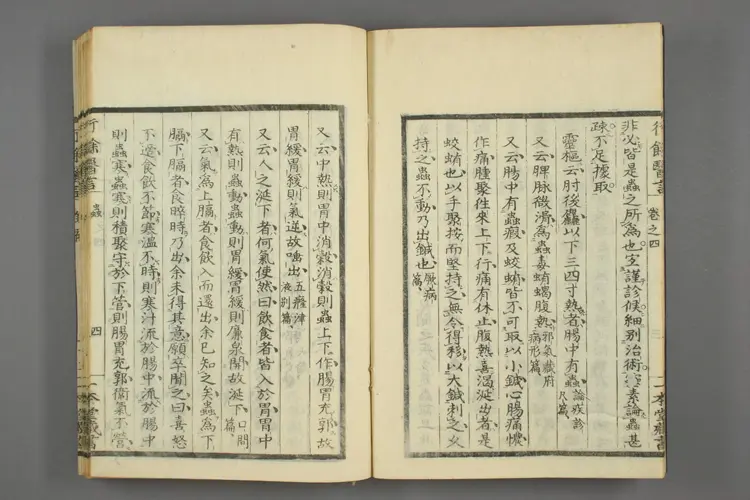 行餘醫言 卷之四 一本堂藏書
非必皆是蟲之所為也宜謹診候細別治術靈素論蟲甚
疎不足據取
靈樞云肘後麤以下三四寸熱者腸中有蟲 論疾診尺篇
又云脾脉微滑為蟲毒蛕蝎腹熱 邪氣藏府病形篇
又云腸中有蟲瘕及蛟蛕皆不可取以小鍼心腸痛憹
作痛腫聚往來上下行痛有休止腹熱喜渴涎出者是
蛟蛕也以手聚按而堅持之無令得移以大鍼刺之久
持之蟲不動乃出鍼也 厥病篇
又云中熱則胃中消穀消穀則蟲上下作腸胃充郭故
胃緩胃緩則氣逆故唾出 五癃津液別篇
又云人之涎下者何氣使然曰飲食者皆入於胃胃中
有熱則蟲動蟲動則胃緩胃緩則廉泉開故涎下 口問篇
又云氣為上膈者食飲入而還出余已知之矣蟲為下
膈下膈者食晬時乃出余未得其意願卒聞之曰喜怒
不適食飲不節寒溫不時則寒汁流於腸中流於腸中
則蟲寒蟲寒則積聚守於下管則腸胃充郭衞氣不營
行餘醫言 蟲 四 一本堂藏書